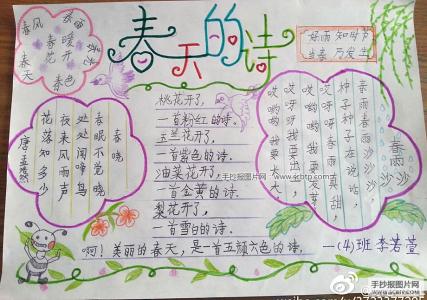 春天的诗
春风
花开
春天
春色
好雨 知时节
当春 乃发生
春晓
春眠不觉晓
处处闻啼鸟
夜来风雨声
花落知多少
唐 孟浩然
桃花开了,
一首粉红的诗.
玉兰花开了,
一首紫色的诗.
油菜花开了,
一首金黄的诗.
梨花开了,
一首雪白的诗.
春雨沙沙
种子种子在说话,
我要发芽
我要长大.
啊!美丽的春天,是一首五颜六色的诗.
一(4)班 李若萱
手抄报图片网